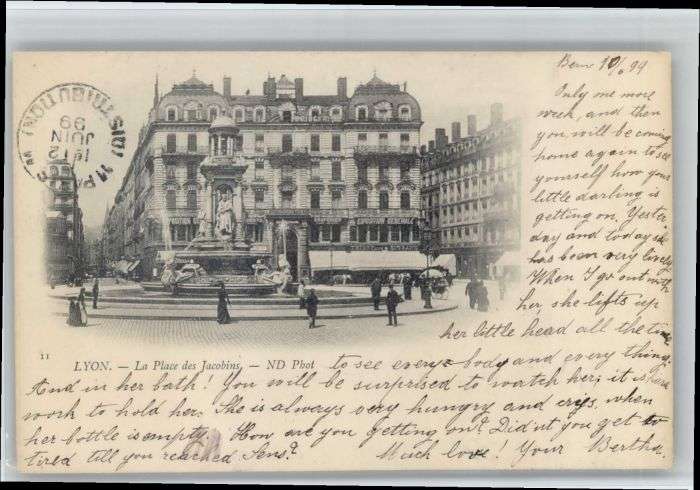 Bern 10/6 99
Only one more
week, and then
you will be coming
home again to see
yourself how your
little darling is
getting on. Yester
day and today is
has been very lively
When I go out with
her, she lifts up
her little head all the time
to see every-body and every thing.
And in her bath! You will be surprised to watch her; it is hard
work to hold her. She is always very hungry and crys, when
her bottle is empty. How are you getting on? Did'nt you get to
tired till you reached Sens?
Much love! Your Bertha.
DISTRIBUTION
PARIS
12
JUIN
99
11
LYON. — La Place des Jacobins. — ND Phot